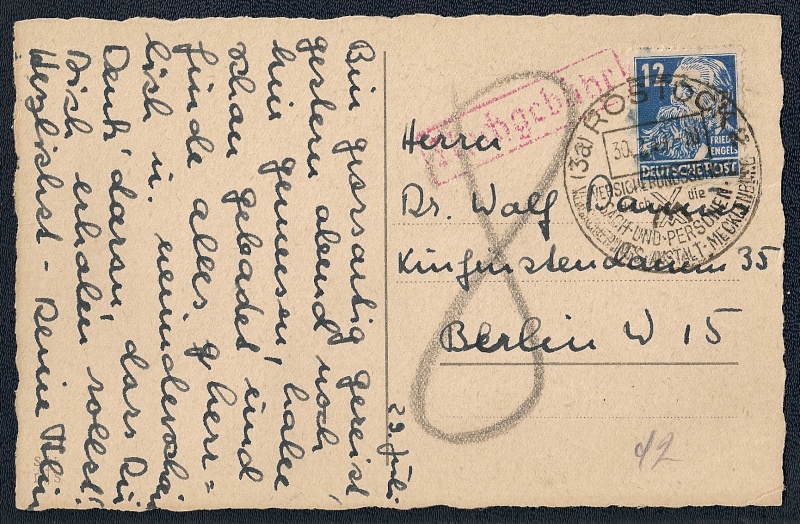 Bin grossartig gereist,
gestern abend noch
hin gewesen, habe
schon gebadet, und
finde alles g herr=
lich u.
Denk' daran, dass Du
Dich erhalen sollst!
Herzlichst - Deine
29. Juli.
Nachgebühr
12
FRIEDR
ENGELS
DEUTSCHE POST
(3a) ROSTOCK
30.
VERSICHERUNG
die
SACH-UND-PERSONEN
VERSICHERUNGSANSTALT-MECKLENBURG
Herrn
Dr. Wolf
Kurfürstendamm 35
Berlin W 15
8
42